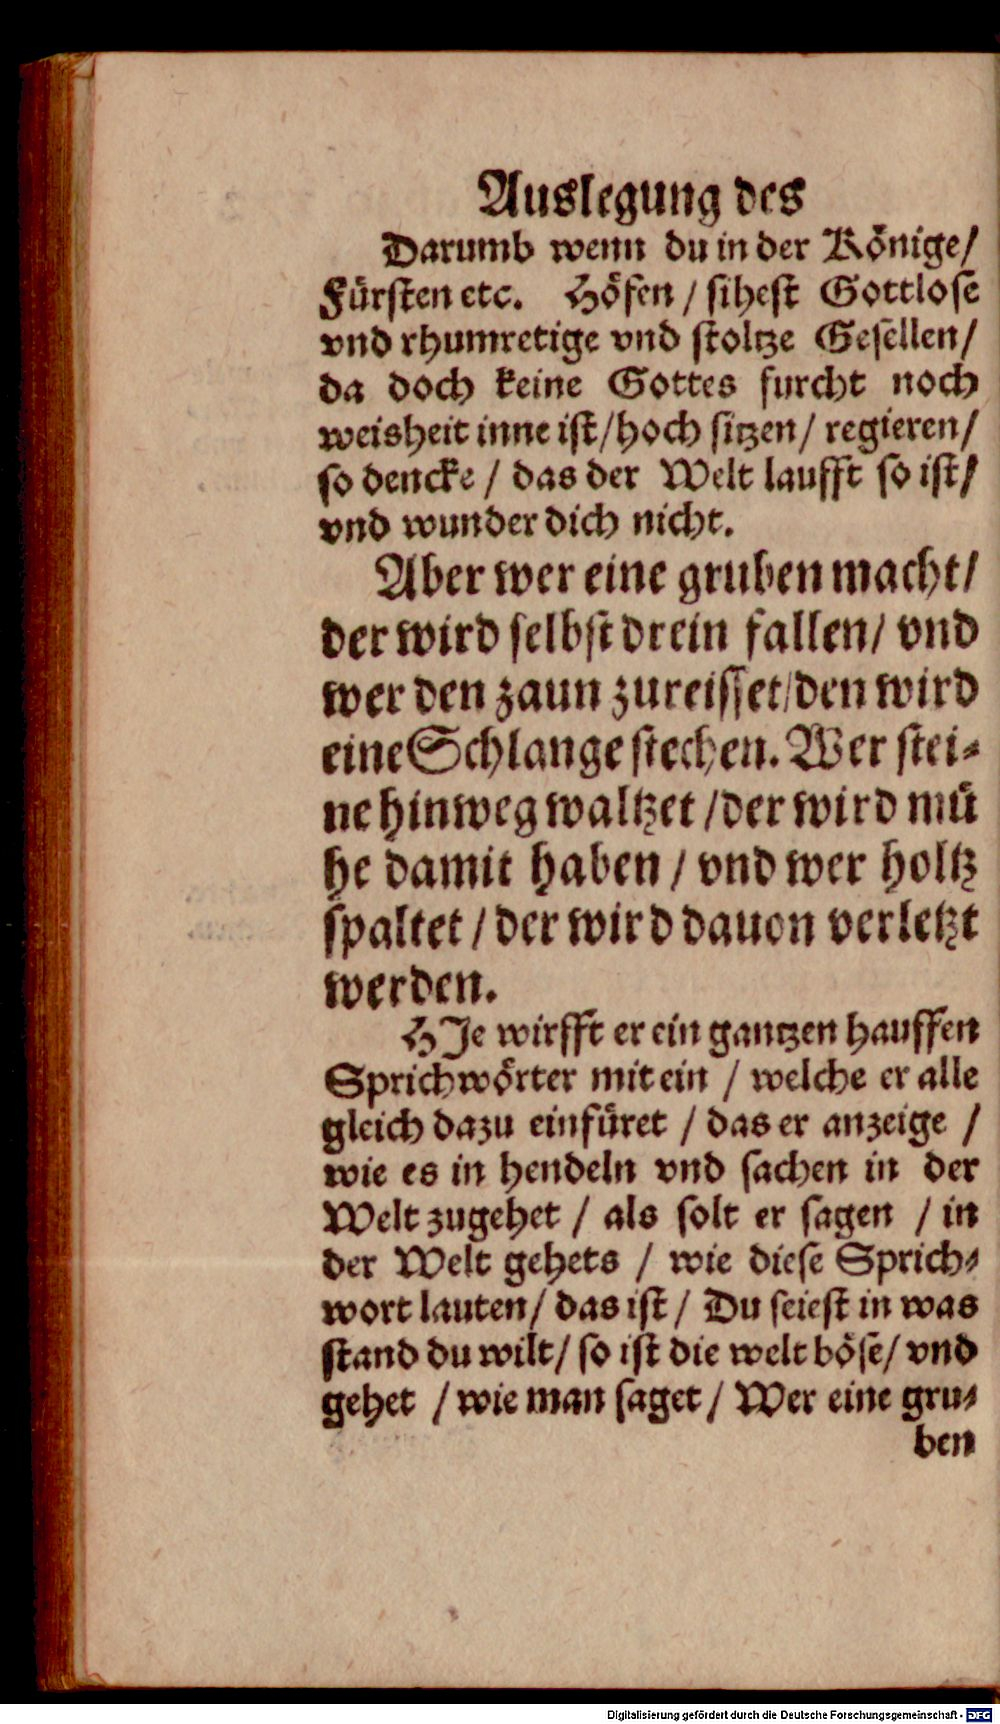 Auslegung des
Darumb wenn du in der Könige/
Fürsten etc. Höfen / sihest Gottlose
vnd rhumretige vnd stoltze Gesellen/
da doch keine Gottes furcht noch
weisheit inne ist/hoch sitzen/ regieren/
so dencke / das der Welt laufft so ist/
vnd wunder dich nicht.
Aber wer eine gruben macht/
der wird selbst drein fallen/ vnd
wer den zaun zureisset/den wird
eine Schlange stechen. Wer stei-
ne hinweg waltzet /der wird mü
he damit haben / vnd wer holtz
spaltet / der wird dauon verletzt
werden.
HJe wirfft er ein gantzen hauffen
Sprichwörter mit ein / welche er alle
gleich dazu einfüret / das er anzeige /
wie es in hendeln vnd sachen in der
Welt zugehet / als solt er sagen / in
der Welt gehets / wie diese Sprich-
wort lauten/ das ist / Du seiest in was
stand du wilt/ so ist die welt böse/ vnd
gehet / wie man saget / Wer eine gru-
ben
Digitalisierung gefördert durch die Deutsche Forschungsgemeinschaft - DFG